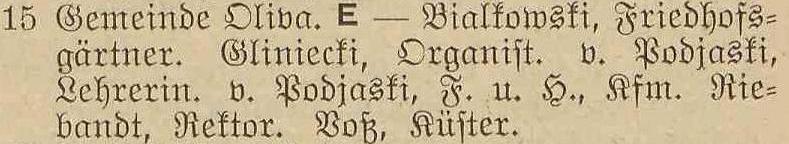 15 Gemeinde Oliva. E — Bialkowski, Friedhofs=
gärtner. Gliniecki, Organist. v. Podjaski,
Lehrerin. v. Podjaski, F. u. H., Kfm. Rie=
bandt, Rektor. Voß, Küster.